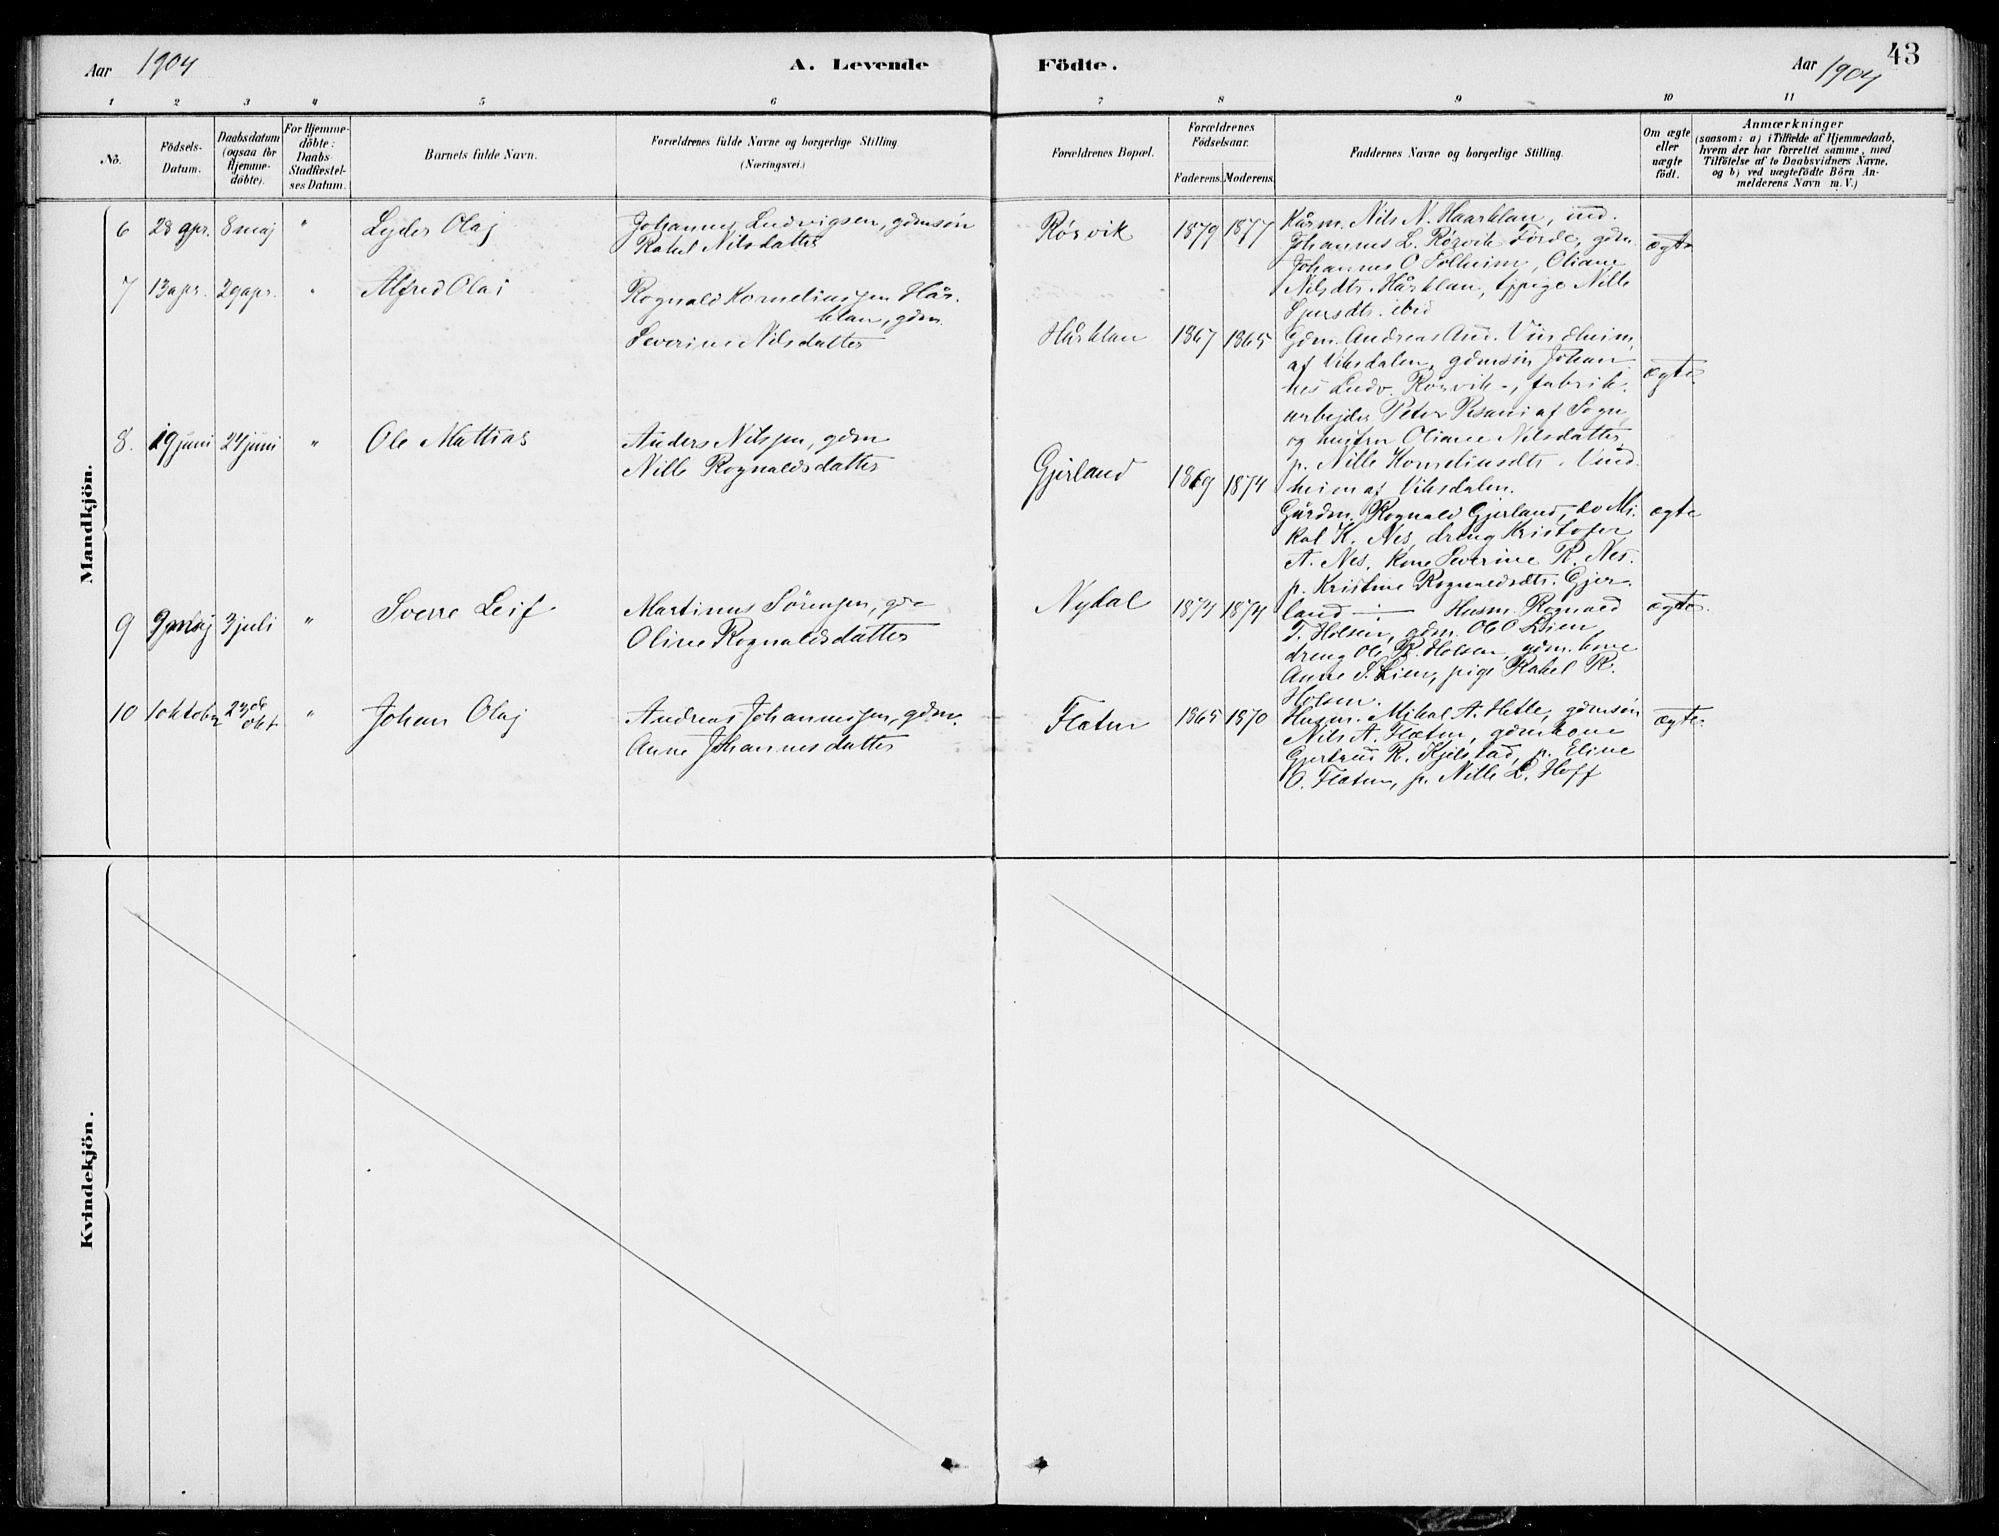 Aar 1904
A. Levende
Födte.
Aar 1904
43
1 2 3 4 5 6 7 8 9 10 11
No.
Födsels-
Datum.
Daabsdatum
(ogsaa for
Hjemme-
döbte).
For Hjemme-
döbte:
Daabs-
Stadfæstel-
ses Datum.
Barnets fulde Navn.
Forældrenes fulde Navne og borgerlige Stilling
(Næringsvei.)
Forældrenes Bopæl.
Forældrenes
Födselsaar.
Faderens. Moderens.
Faddernes Navne og borgerlige Stilling.
Om ægte
eller
uægte
födt.
Anmærkninger
(saasom: a) i Tilfælde af Hjemmedaab,
hvem der har forrettet samme, med
Tilföielse af to Daabsvidners Navne,
og b) ved uægtefödte Börn An-
melderens Navn m. V.)
Mandkjön.
6 28 apr. 8 maj " Lyder Olaj
Johannes Ludvigsen, gdmsøn
Rakel Nilsdatter
Røsvik 1879 1877
Kårm. Nils N. Haarklau, ind.
Johannes L. Røsvik Førde, gdm.
Johannes O Solheim, Oliane
Nilsdtr. Hårklau, tjpige Nille
Sjursdtr. ibid
ægte
7 13 apr. 29 apr. " Alfred Olai
Rognald Korneliussen Hår-
klau, gdm.
Severine Nilsdatter
Hårklau 1867 1865
Gdm. Andreas And. Vindheim,
af Viksdalen, gdmsøn Johan-
nes Ludv. Røsvik -, fabrik-
arbejder Peter Pisani af Sogn,
og hustru Oliane Nilsdatter,
p. Nille Korneliusdtr. Vind-
heim af Viksdalen.
ægte
8. 19 juni 24 juni " Ole Mattias
Anders Nilssen, gdm
Nille Rognaldsdatter
Gjerland 1869 1874
Gårdm. Rognald Gjerland, do Mi-
kal K. Nes, dreng Kristofer
A. Nes, kone Severine R. Nes.
p. Kristine Rognaldsdtr. Gjer-
land
ægte
9 9 maj 3 juli " Sverre Leif
Martinus Sørensen, gdm
Oline Rognaldsdatter
Nydal 1874 1874
Husm. Rognald
T. Holsen, gdm. Ole O Lien
dreng Ole R. Holsen, gdm. kone
Anne S. Lien, pige Rakel R.
Holsen.
ægte
10 1 oktober 23de okt. " Johan Olaj
Andreas Johannessen, gdm.
Anne Johannesdatter
Flatun 1865 1870
Husm. Mikal A. Hetle, gdmsøn
Nils A. Flatun, gdmkone
Gjertrud R. Kjelstad, p. Eline
O. Flatun, p. Nille L. Hoff
ægte
Kvindekjön.